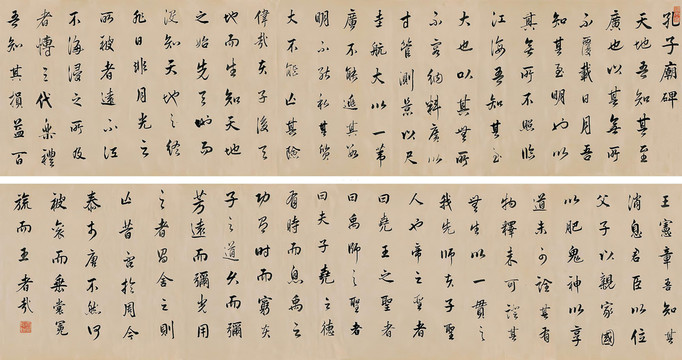 孔子廟碑
天地吾知其至
廣也以其無所
不覆載日月吾
知其至明也以
其無所不照臨
江海吾知其至
大也以其無所
不容納料廣以
寸管測景以尺
圭航大以一葦
廣不能逃其數
明不能私其質
大不能亡其險
偉哉夫子後天
地而生知天地
之始先天地而
沒知天地之終
非日非月光之
所被者遠不江
不海浸之所及
者博三代樂禮
吾知其損益百
王憲章吾知其
消息君臣以位
父子以親家國
以肥鬼神以享
道未可詮其有
物釋未可證其
無生以一貫之
我先師夫子聖
人也帝之聖者
曰堯王之聖者
曰禹師之聖者
曰夫子堯之德
有時而息禹之
功有時而窮夫
子之道久而彌
芳遠而彌光用
之者昌舍之則
亡昔否於周今
泰於唐不然何
被袞而垂裳冕
旒而王者哉